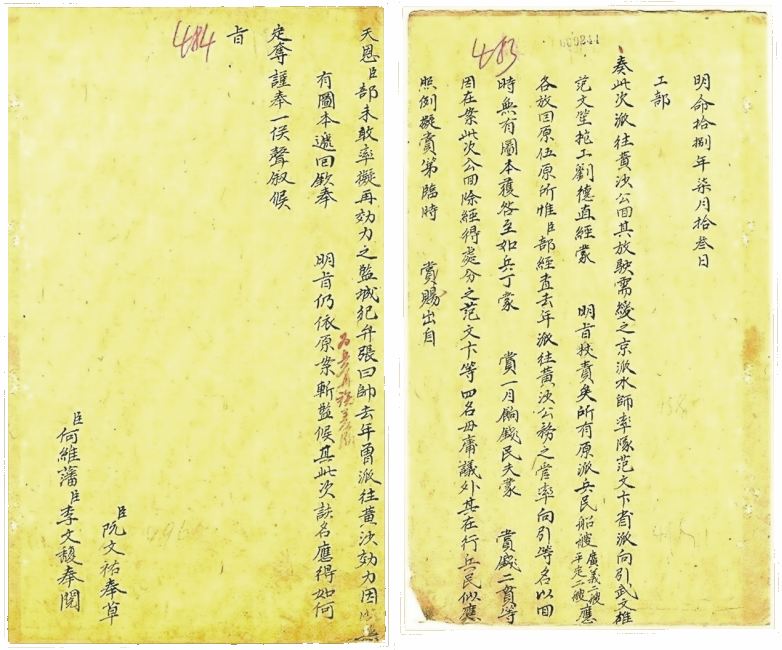 明命拾捌年柒月拾叁日
工部
奏此次派往黃沙公回其放駛需緩之京派水師率隊范文卞省派向引武文雄
范文坣挖工劉德直經蒙 明旨杖責矣所有原派兵民船艘廣義二艘平定二艘應
各放回原伍原所惟臣部經查去年派往黃沙公務之管率向引等名以回
時無有圖本獲咎至如兵丁蒙 賞一月餉錢民夫蒙 賞錢二貫等
因在案此次公回除經得處分之范文卞等四名毋庸議外其在行兵民似應
照例擬賞第臨時 賞賜出自
483
000244
天恩臣部未敢率擬再効力之監城犯弁張曰帥去年曾派往黃沙効力因
有圖本遞回欽奉 明旨仍依原案斬監候其此次該名應得如何
定奪謹奉一候聲敘候
旨
臣阮文祐奉草
臣何維藩臣李文馥奉閱
484